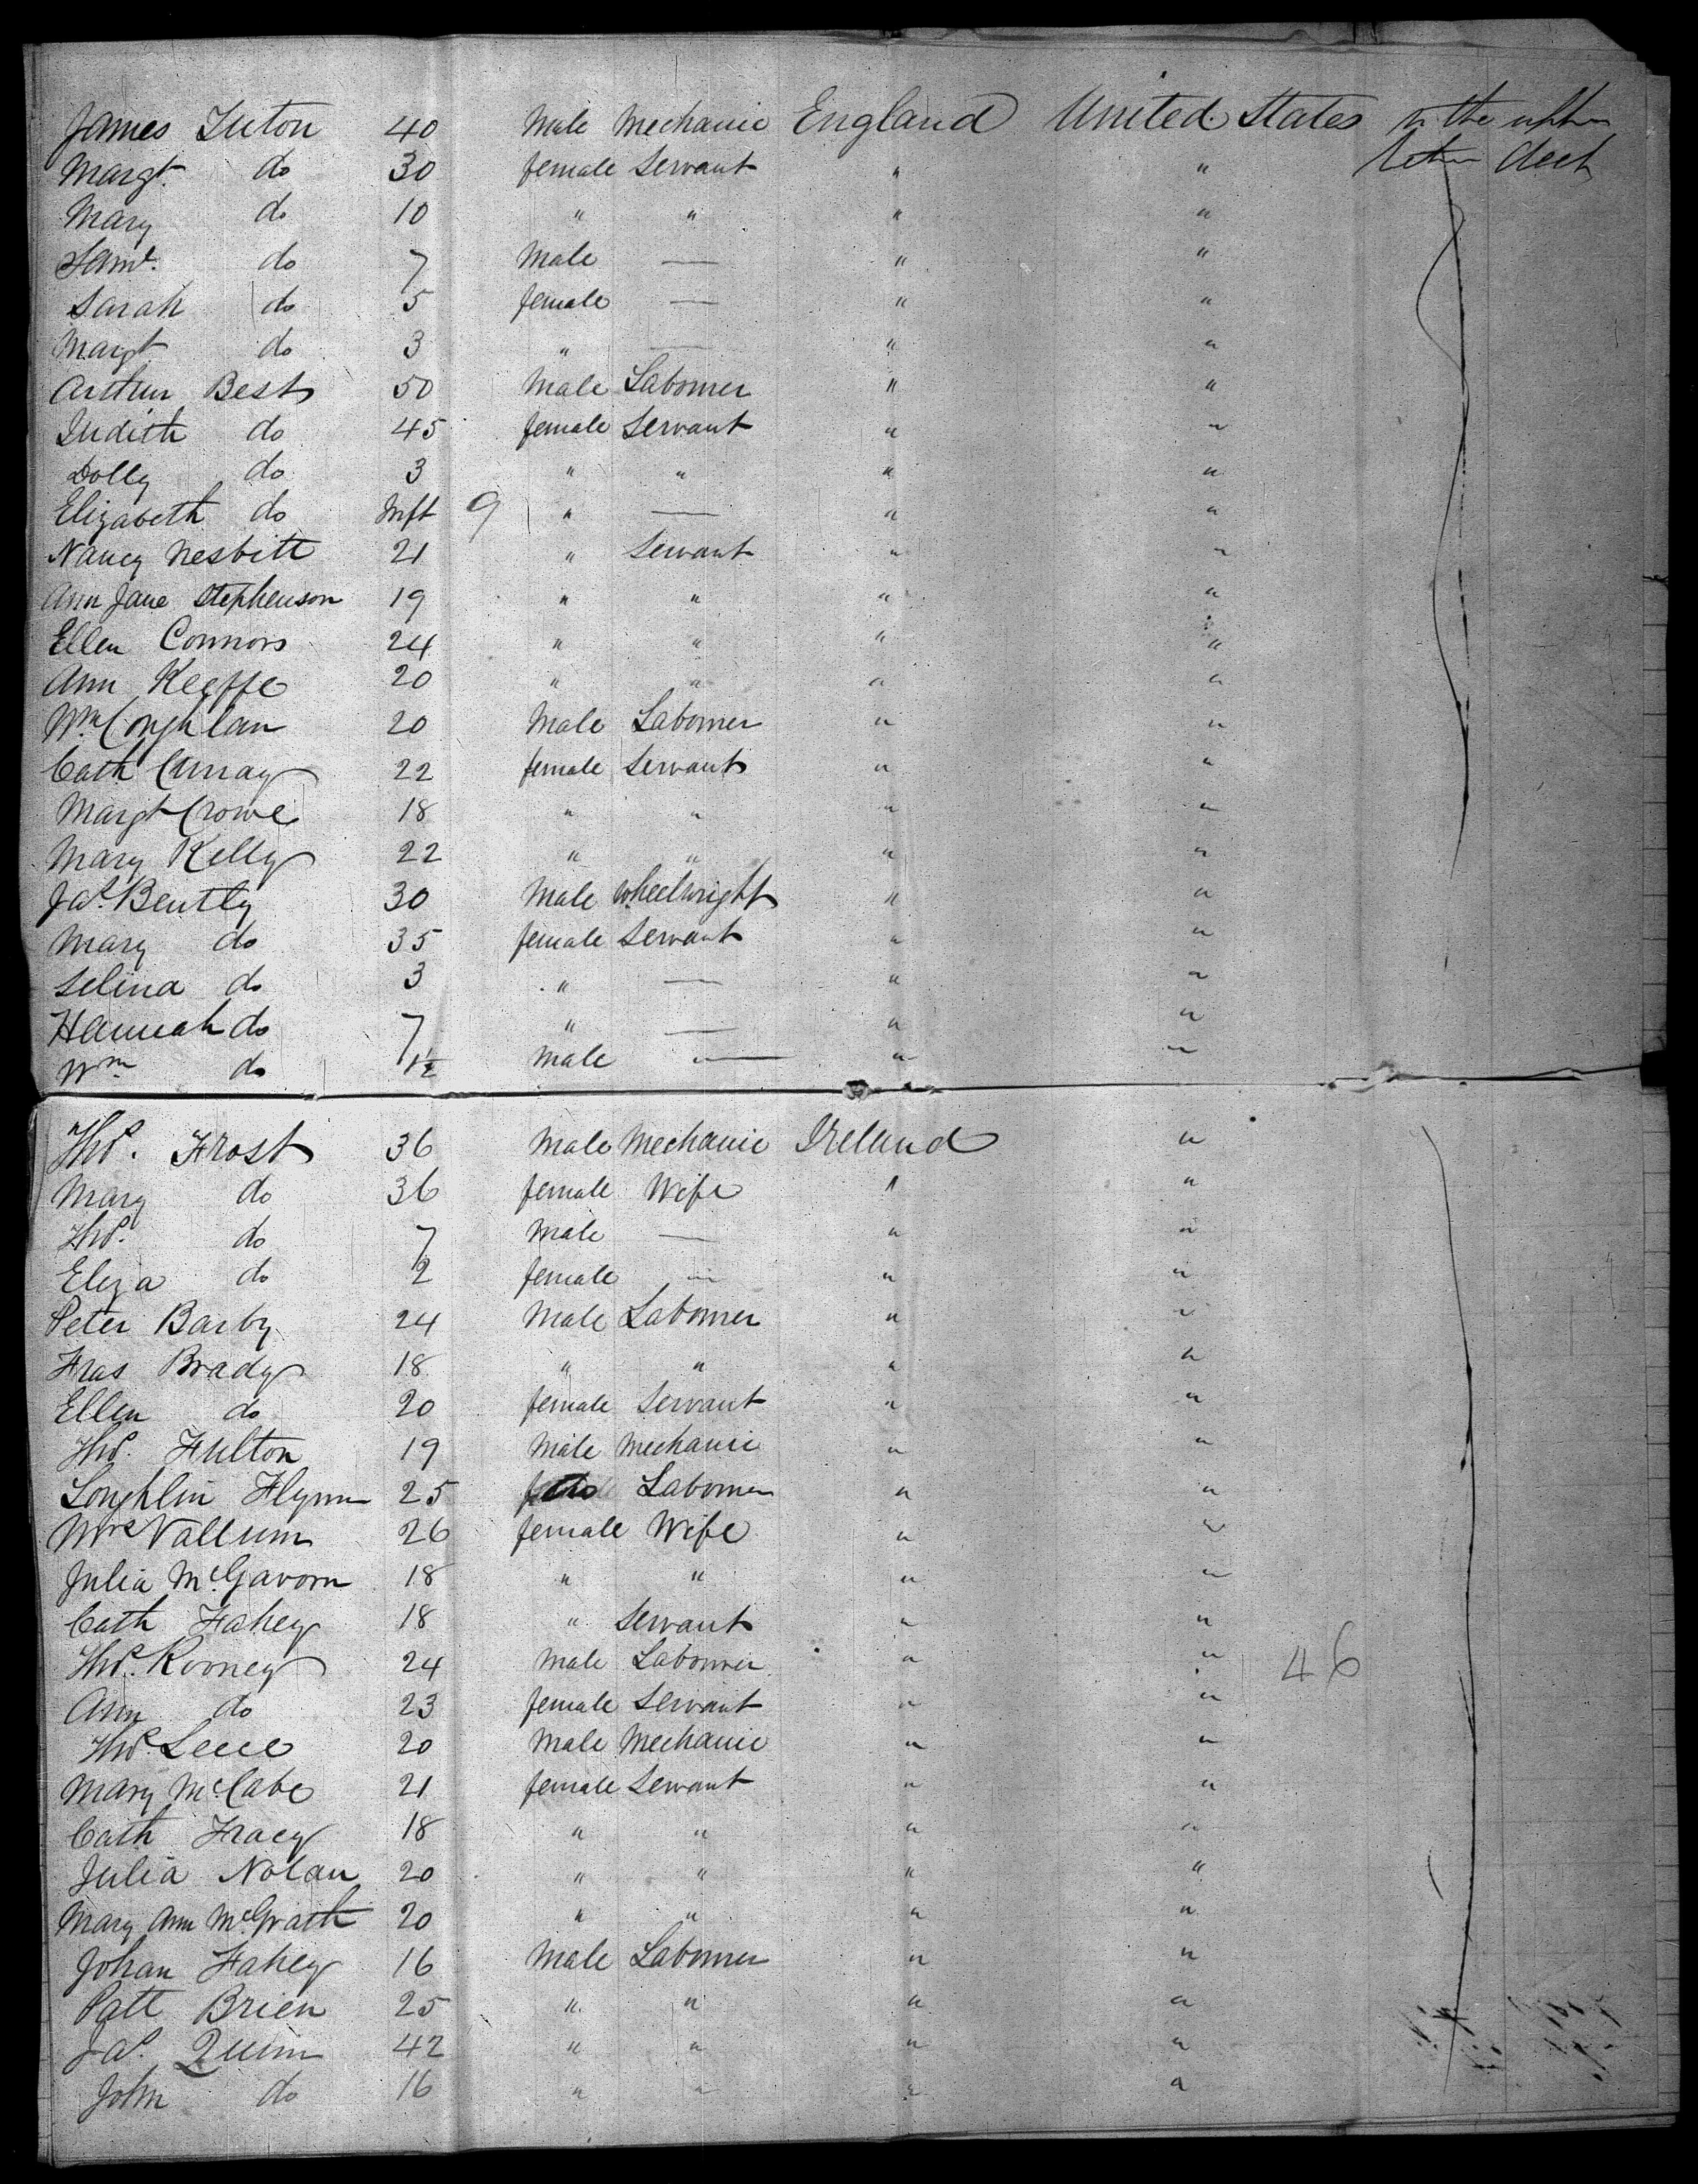 James Tuton 40 Male Mechanic England United States In the upper
Margt. do 30 female Servant " " between deck
Mary do 10 " " " "
Saml. do 7 Male — " "
Sarah do 5 female — " "
Margt do 3 " — " "
Arthur Best 50 Male Labourer " "
Judith do 45 female Servant " "
Dolly do 3 " " " "
Elizabeth do Inft 9 " — " "
Nancy Nesbitt 21 " Servant " "
Ann Jane Stephenson 19 " " " "
Ellen Connors 24 " " " "
Ann Keeffe 20 " " " "
Wm Coghlan 20 Male Labourer " "
Cath Curray 22 female Servant " "
Margt Crowe 18 " " " "
Mary Kelly 22 " " " "
Jas. Bently 30 Male Wheelwright " "
Mary do 35 female Servant " "
Selina do 3 " — " "
Hannah do 7 " — " "
Wm do 1½ Male — " "
Thos. Frost 36 Male Mechanic Ireland "
Mary do 36 female Wife " "
Thos. do 7 Male — " "
Eliza do 2 female — " "
Peter Barby 24 Male Labourer " "
Fras Brady 18 " " " "
Ellen do 20 female Servant " "
Thos. Fulton 19 Male Mechanic " "
Loughlin Flynn 25 Labourer " "
Mrs Vallum 26 female Wife " "
Julia McGavorn 18 " " " "
Cath Fahey 18 " Servant " "
Thos. Rooney 24 Male Labourer " " 46
Ann do 23 female Servant " "
Thos. Leee 20 Male Mechanic " "
Mary McCabe 21 female Servant " "
Cath Tracy 18 " " " "
Julia Nolan 20 " " " "
Mary Ann McGrath 20 " " " "
Johan Fahey 16 Male Labourer " "
Patt Brien 25 " " " "
Jas. Quinn 42 " " " "
John do 16 " " " "